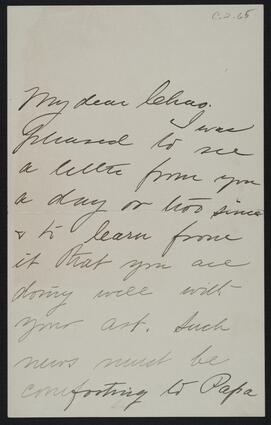 C.2.65
My dear Chas.
I was
pleased to see
a letter from you
a day or two since
& to learn from
it that you are
doing well with
your art. Such
news must be
comforting to Papa